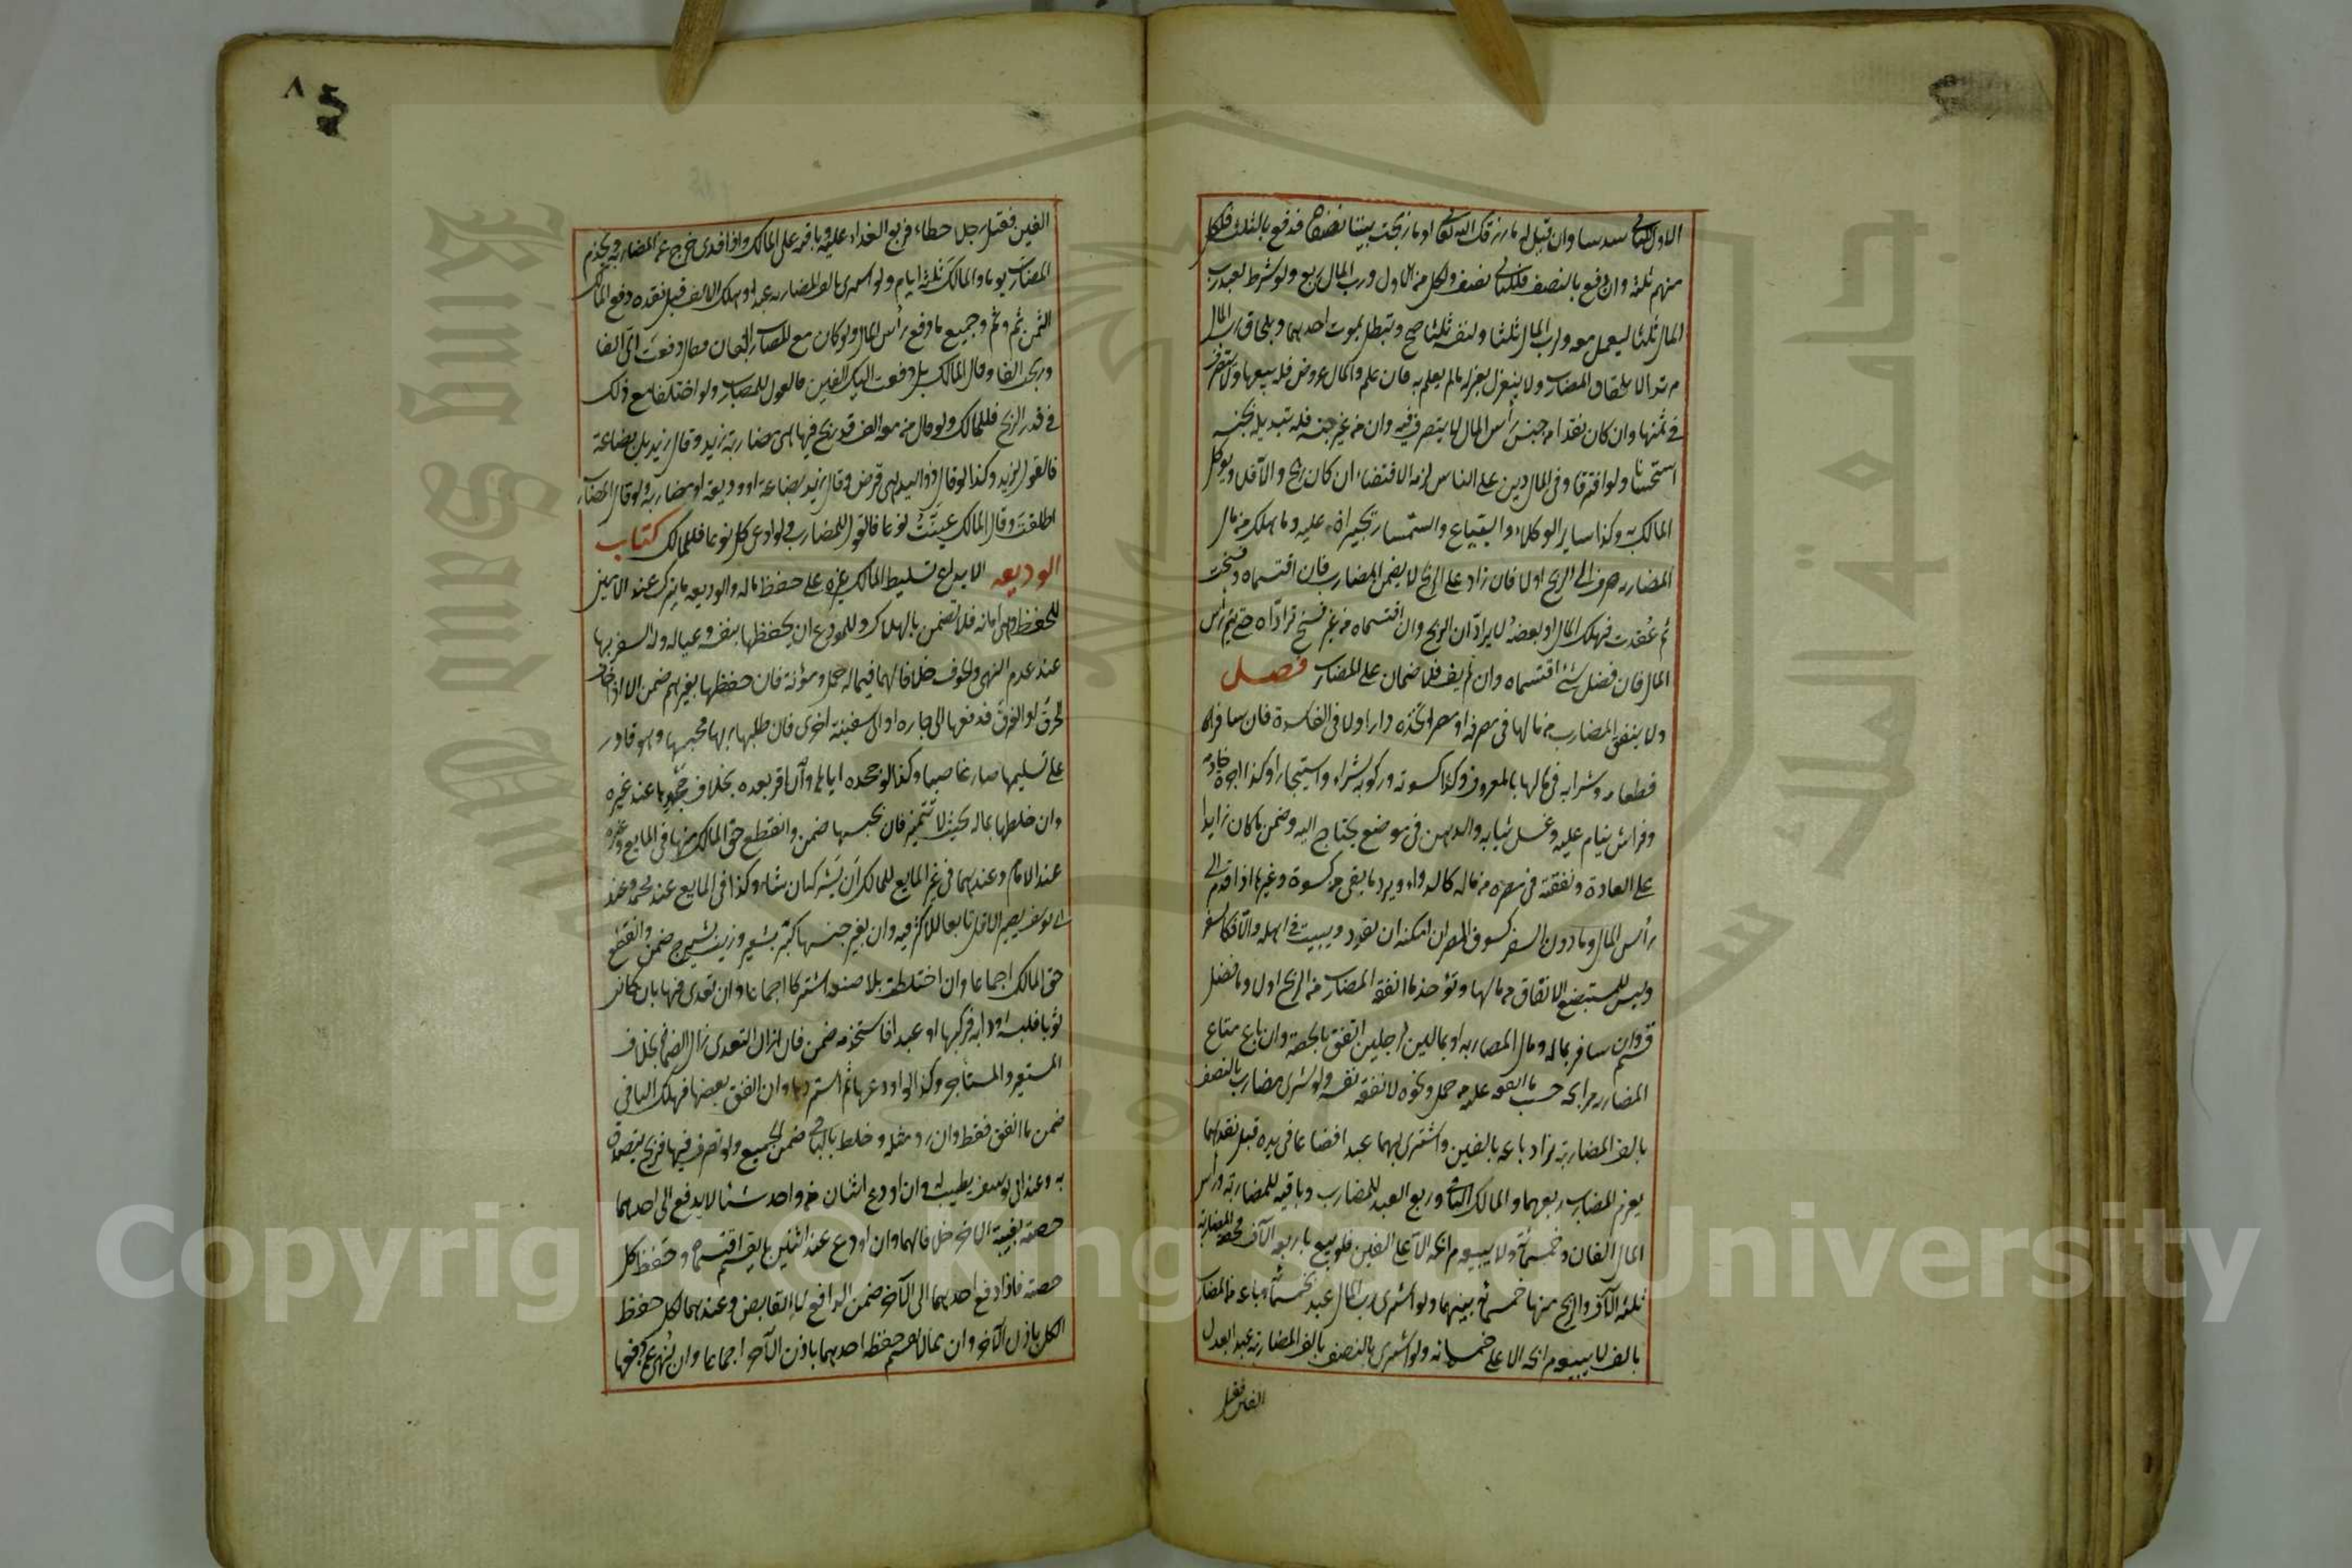 الاول للثاني سدسا وان قيل له ما رزقك الله تعالى او ما ربحت بيننا نصفان فدفع بالثلث فلكل
منهم ثلثه وان دفع بالنصف فللثاني نصف ولكل من الاول ورب المال ربع ولو شرط لعبد رب
المال ثلثا ليعمل معه ولرب المال ثلثا ولنفسه ثلثا صح وتبطل بموت احدهما وبلحاق رب المال
مرتدا لا بلحاق المضارب ولا ينعزل بعزله ما لم يعلم به فان علم والمال عروض فله بيعها ولا يتصرف
في ثمنها وان كان نقدا من جنس رأس المال لا يتصرف فيه وان من غير جنسه فله تبديله بجنسه
استحسانا ولو افترقا وفي المال دين على الناس لزمه الاقتضاء ان كان ربح والا فلا ويوكل
المالك به وكذا ساير الوكلاء والبياع والسمسار يجبران عليه وما هلك من مال
المضاربه صرف الى الربح اولا فان زاد على الربح لا يضمن المضارب فان اقتسماه وفسخت
ثم عقدت فهلك المال او بعضه لا يرادان الربح وان اقتسماه من غير فسخ ترادّاه حتى يتم رأس
المال فان فضل شئ اقتسماه وان لم يف فلا ضمان على المضارب فصل
ولا ينفق المضارب من مالها في مصره او مصر اتخذه دارا ولا في الفاسدة فان سافر
فطعامه وشرابه في مالها بالمعروف وكذا كسوته وركوبه شراء واستيجارا وكذا اجرة خادمه
وفراش ينام عليه وغسل ثيابه والدهن في موضع يحتاج اليه وضمن ما كان زايدا
على العادة ونفقته في مصره من ماله كالدواء ويرد ما بقي من كسوة وغيرها اذا قدم الى
رأس المال وما دون السفر كسوق المصر ان امكنه ان يغدو ويبيت في اهله والا فكالسفر
وليس للمستبضع الانفاق من مالها وتؤخذ ما انفقه المضارب من الربح اولا وما فضل
قسم وان سافر بماله ومال المضاربه او بمالين لرجلين انفق بالحصة وان باع متاع
المضاربه مرابحه حسب ما انفقه عليه من حمل ونحوه لا نفقة نفسه ولو شرى مضارب بالنصف
بالف المضاربة بزا وباعه بالفين واشترى بهما عبدا فضاعا في يده قبل نقدهما
يغرم المضارب ربعهما والمالك الباقي وربع العبد للمضارب وباقيه للمضاربة ورأس
المال الفان وخمسمائة ولا يبيعه مرابحه الا على الفين فلو بيع باربعه آلاف فحصة المضاربة
ثلثه آلاف والربح منها خمسمائه بينهما ولو اشترى رب المال عبدا بخمسمائة وباعه من المضارب
بالف لا يبيعه مرابحه الا على خمسمائه ولو اشترى بالنصف بالف المضاربة عبدا يعدل
الفين فقتل
٨
الفين فقتل رجلا خطاء فربع الفداء عليه وباقيه على المالك واذا فدى خرج عن المضاربه ويخدم
المضارب يوما والمالك ثلثة ايام ولو اشترى بالف المضاربه عبدا وهلك الالف قبل نقده دفع المالك
الثمن ثم وثم وجميع ما دفع رأس المال ولو كان مع المضارب الفان فقال دفعت الى الفا
وربحت الفا وقال المالك بل دفعت اليك الفين فالقول للمضارب ولو اختلفا مع ذلك
في قدر الربح فللمالك ولو قال من معه الف قد ربح فيها هى مضاربة زيد وقال زيد بل بضاعة
فالقول لزيد وكذا لو قال ذو اليد هى قرض وقال زيد بضاعة او وديعه او مضاربه ولو قال المضارب
اطلقت وقال المالك عينت نوعا فالقول للمضارب ولو ادعى كل نوعا فللمالك كتاب
الوديعه الايداع تسليط المالك غيره على حفظ ماله والوديعه ما يترك عند الامين
للحفظ وهى امانة فلا تضمن بالهلاك وللمودع ان يحفظها بنفسه وعياله وله السفر بها
عند عدم النهى والخوف خلافا لهما فيما له حمل ومؤنة فان حفظها بغيرهم ضمن الا اذا خاف
الحرق او الغرق فدفعها الى جاره او الى سفينة اخرى فان طلبها ربها فحبسها وهو قادر
على تسليمها صار غاصبا وكذا لو جحده اياها وان اقر بعده بخلاف جحودها عند غيره
وان خلطها بماله بحيث لا تتميز فان بجنسها ضمن وانقطع حق المالك منها في المايع وغيره
عند الامام وعندهما في غير المايع للمالك ان يشركه ان شاء وكذا في المايع عند محمد وعند
ابى يوسف يصير الاقل تابعا للاكثر فيه وان بغير جنسها كبر بشعير وزيت بشيرج ضمن وانقطع
حق المالك اجماعا وان اختلطت بلا صنعه اشتركا اجماعا وان تعدى فيها بان كانت
ثوبا فلبسه او دابه فركبها او عبدا فاستخدمه ضمن فان ازال التعدى زال الضمان بخلاف
المستعير والمستأجر وكذا لو اودعها ثم استردها وان انفق بعضها فهلك الباقي
ضمن ما انفق فقط وان رد مثله وخلط بالباقي ضمن الجميع ولو تصرف فيها فربح يتصدق
به وعند ابى يوسف يطيب له وان اودع اثنان من واحد شيئا لا يدفع الى احدهما
حصته بغيبة الآخر خلافا لهما وان اودع عند اثنين ما يقسم اقتسماه وحفظ كل
حصته فاذا دفع احدهما الى الآخر ضمن الدافع لا القابض وعندهما لكل حفظ
الكل باذن الآخر وان مما لا يقسم حفظه احدهما باذن الآخر اجماعا وان نهى عن دفعها
Copyright © King Saud University
King Saud University
جامعة الملك سعود